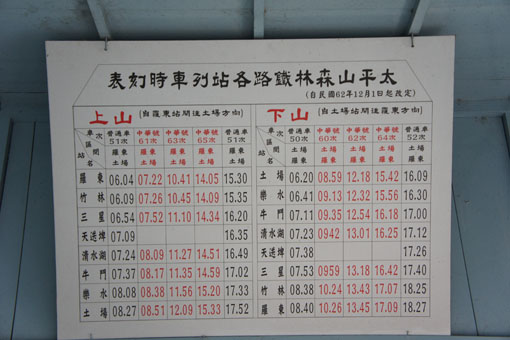 太平山森林鐵路各站列車時刻表
(自民國62年12月1日起改定)
上山 (自羅東站開往土場方向)
車次 普通車 中華號 中華號 中華號 普通車
區間 51次 61次 63次 65次 51次
羅東 羅東 羅東 羅東 羅東
站名 土場 土場 土場 土場 土場
羅東 06.04 07.22 10.41 14.05 15.30
竹林 06.09 07.26 10.45 14.09 15.35
三星 06.54 07.52 11.10 14.34 16.20
天送埤 07.09 16.35
清水湖 07.24 08.09 11.27 14.51 16.49
牛門 07.37 08.17 11.35 14.59 17.02
樂水 08.08 08.38 11.56 15.20 17.33
土場 08.27 08.51 12.09 15.33 17.52
下山 (自土場站開往羅東方向)
車次 普通車 中華號 中華號 中華號 普通車
區間 50次 60次 62次 64次 52次
土場 土場 土場 土場 土場
站名 羅東 羅東 羅東 羅東 羅東
土場 06.20 08.59 12.18 15.42 16.09
樂水 06.41 09.13 12.32 15.56 16.30
牛門 07.11 09.35 12.54 16.18 17.00
清水湖 07.23 0942 13.01 16.25 17.12
天送埤 07.38 17.26
三星 07.53 0959 13.18 16.42 17.40
竹林 08.38 10.24 13.43 17.07 18.25
羅東 08.40 10.26 13.45 17.09 18.27